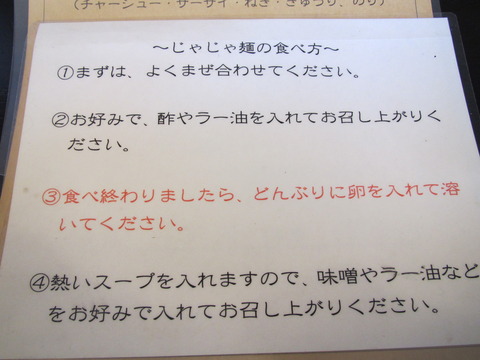 (チャーシュー・ザーサイ・ねぎ・きゅうり、のり)
～じゃじゃ麺の食べ方～
①まずは、よくまぜ合わせてください。
②お好みで、酢やラー油を入れてお召し上がりく
ださい。
③食べ終わりましたら、どんぶりに卵を入れて溶
いてください。
④熱いスープを入れますので、味噌やラー油など
をお好みで入れてお召し上がりください。